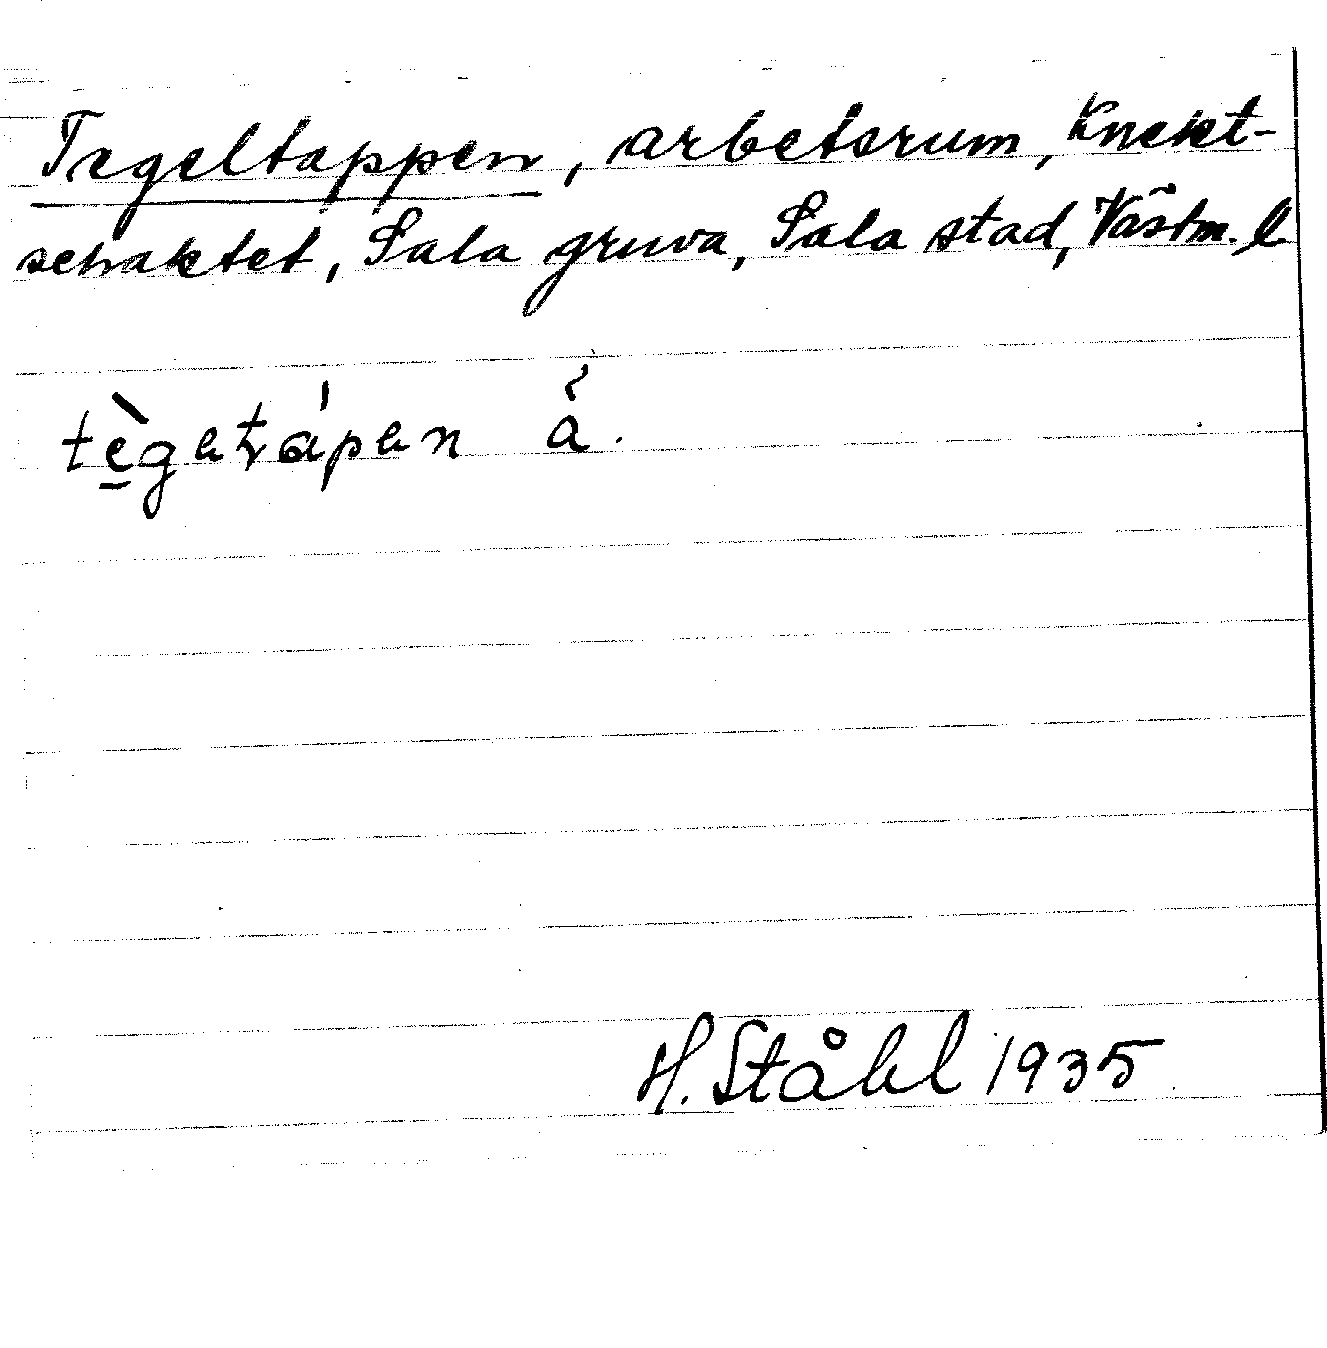 Tegeltappen, arbetsrum, Knekt-
schaktet, Sala gruva, Sala stad, Västm. l.
tègetápen å.
H. Ståhl 1935